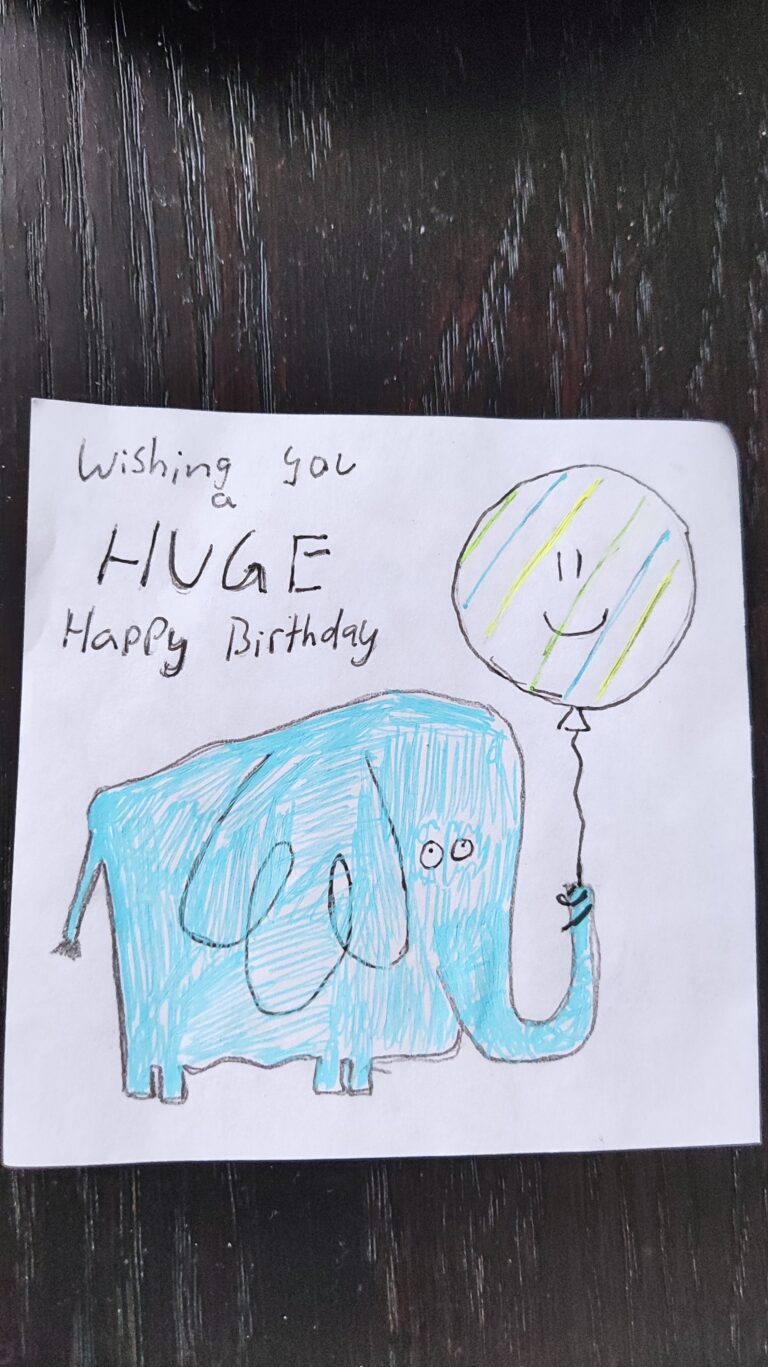 Wishing you
a
HUGE
Happy Birthday